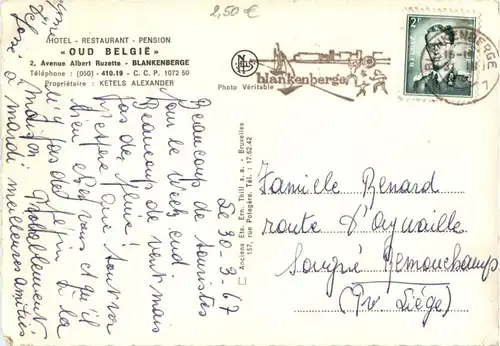 2,50 €
HOTEL - RESTAURANT - PENSION
« OUD BELGIË »
2, Avenue Albert Ruzette - BLANKENBERGE
Téléphone : (050) - 410.19 - C. C. P. 1072 50
Propriétaire : KETELS ALEXANDER
NELS
Photo Véritable
blankenberge
BLANKENBERGE
BELGIE
2F
Anciens Ets. Ern. Thill s. a. - Bruxelles
157, rue Potagère. Tél. : 17.62.42
Le 30-3-67
Beaucoup de touristes
pour le week end.
Beaucoup de vent mais
pas de pluie!
J'espère que tout va
bien chez vous et qu'il
n'y a pas de à la
maison. Probablement
à mardi meilleures amitiés
José
Famille Renard
route d'Aywaille
Sougné Remouchamps
(Pr. Liége)